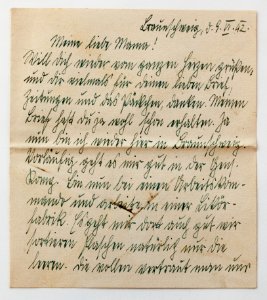 Braunschweig, d. 9. VI. 42.
Meine liebe Mama!
Will dich wieder von ganzen Herzen grüßen,
und dir vielmals für deinen lieben Brief,
Zeitungen und das Päckchen, danken. Meinen
Brief hast du ja wohl schon erhalten. Ja
nun bin ich wieder hier in Braunschweig.
Vorläufig geht es mir gut in der Gen.
Komp. Bin nun bei einem Arbeitskom-
mando und arbeite in einer Likör-
fabrik. Es geht mir dort auch gut wir
sortieren Flaschen natürlich nur die
leeren. Die vollen vertraut man uns